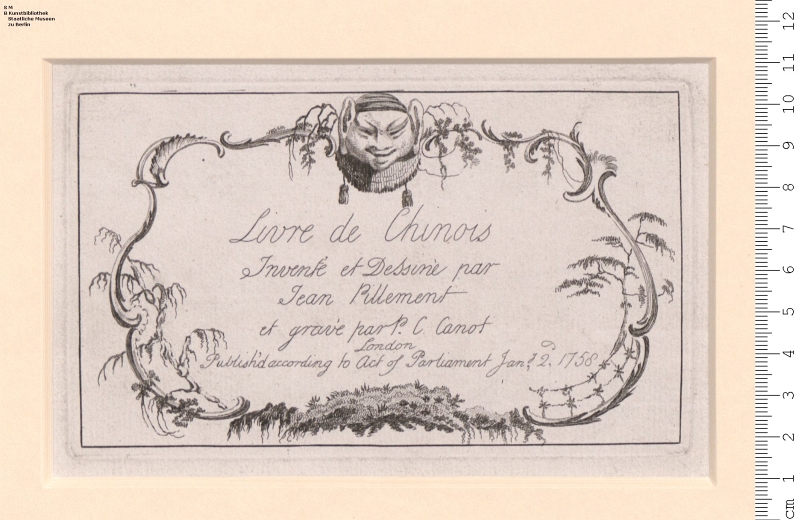 BM
B Kunstbibliothek
Staatliche Museen
zu Berlin
Livre de Chinois
Inventé et Dessiné par
Jean Pillement
et gravé par P. C. Canot
London
Publish'd according to Act of Parliament Jan.y 2.d 1758
12
11
10
9
8
7
6
5
4
3
2
1
cm